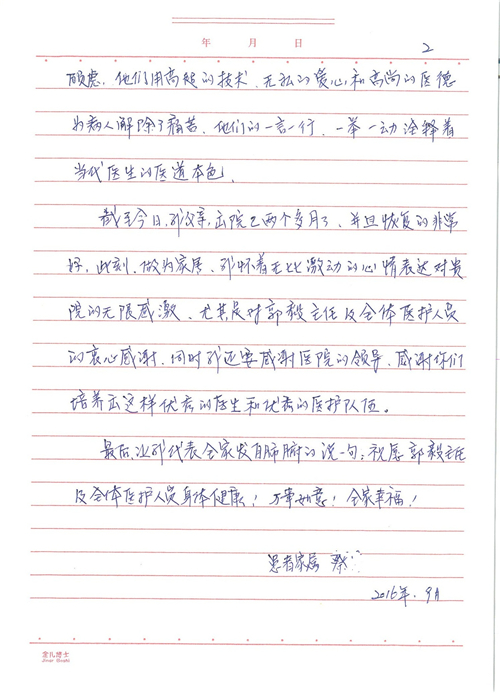 年 月 日
2
顾虑. 他们用高超的技术、无私的爱心和高尚的医德
为病人解除了痛苦. 他们的一言一行、一举一动诠释着
当代医生的医道本色.
截至今日,我父亲出院已两个多月了、并且恢复的非常
好. 此刻、做为家属、我怀着无比激动的心情表达对贵
院的无限感激、尤其是对郭毅主任及全体医护人员
的衷心感谢. 同时我还要感谢医院的领导、感谢你们
培养出这样优秀的医生和优秀的医护队伍。
最后、让我代表全家发自肺腑的说一句:祝愿郭毅主任
及全体医护人员身体健康!万事如意!全家幸福!
患者家属 蔡
2016年.9月